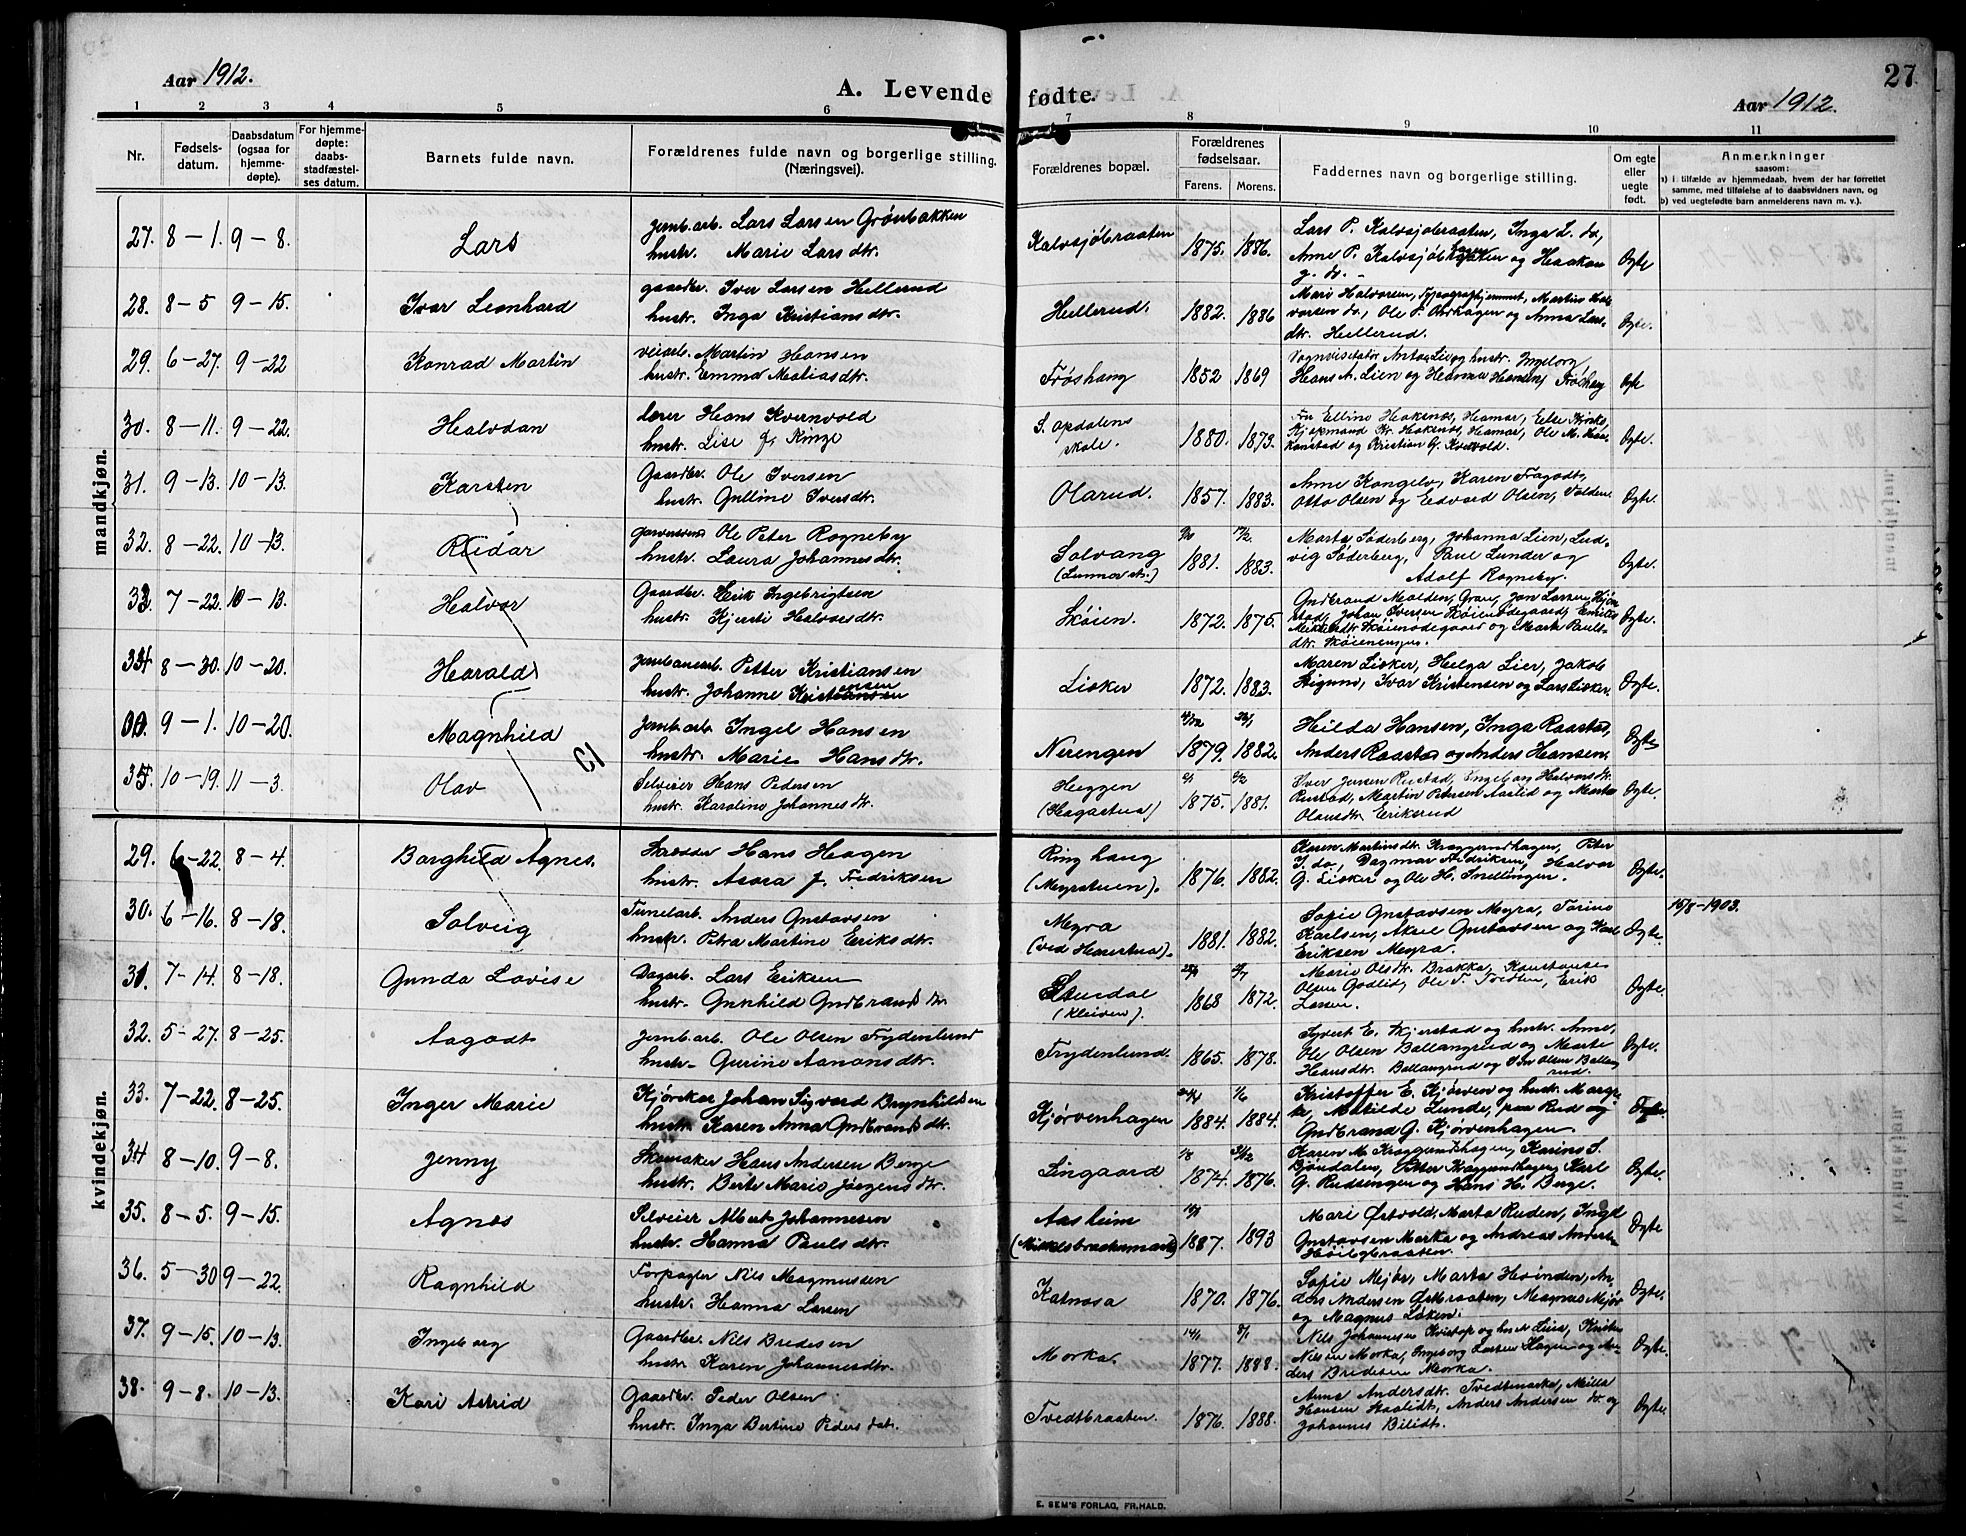 Aar 1912.
A. Levende fødte.
Aar 1912.
27
1 2 3 4 5 6 7 8 9 10 11
Nr.
Fødsels-
datum.
Daabsdatum
(ogsaa for
hjemme-
døpte).
For hjemme-
døpte:
daabs-
stadfæstel-
ses datum.
Barnets fulde navn.
Forældrenes fulde navn og borgerlige stilling.
(Næringsvei).
Forældrenes bopæl.
Forældrenes
fødselsaar.
Farens. Morens.
Faddernes navn og borgerlige stilling.
Om egte
eller
uegte
født.
Anmerkninger
saasom:
a) i tilfælde av hjemmedaab, hvem der har forrettet
samme, med tilføielse af to daabsvidners navn, og
b) ved uegtefødte barn anmelderens navn m. v.).
mandkjøn.
27. 8-1. 9-8. Lars
Jernb.arb. Lars Larsen Grønbakken
hustr. Marie Larsdtr.
Kalvsjøbraaten 1875. 1886.
Lars P. Kalvsjøbraaten, Inga L. do,
Anne P. og Haakon
Egte
28. 8-5 9-15. Ivar Leonhard
gaardbr. Iver Larsen Hellerud
hustr. Inga Kristiansdtr.
Hellerud. 1882. 1886
Mari Halvorsen, Typografhjemmet, Martius Hal-
vorsen do, Ole P. og Anna Lars-
dtr. Hellerud.
Egte.
29. 6-27. 9-22 Konrad Martin
veiarb. Martin Hansen
hustr. Emma Matiasdtr.
Frøshaug 1852 1869
Vognvisitatør Anton Lie og hustr. Ingeborg
Hans A. Lien og Hanna Hansen, Frøshaug
Egte
30. 8-11. 9-22. Halvdan
lærer Hans Kvernvold
hustr. Lise f. Ringe
S. Opdalens
skole. 1880. 1873.
Fru Elline Hokenæs, Hamar, Else Kirks,
Kjøpmand Kr. Hokenæs, Hamar, Ole M. Haa-
kenstad og Kristian G. Kvernvold.
Egte.
31. 9-13. 10-13. Karsten
Gaardbr. Ole Iversen
hustr. Gulline Iversdtr.
Olarud. 1857. 1883.
Anne Kongelv, Karen Fagodt,
Otto Olsen og Edvard Olsen,
Egte.
32. 8-22. 10-13. Reidar
Ole Peter Rogneby
hustr. Laura Johannesdtr.
Solvang
(Lunner st.) 1881. 1883.
Marta Søderberg, Johanna Lien, Lud-
vig Søderberg, Paul Lunder og
Adolf Rogneby.
Egte.
33. 7-22. 10-13. Halvor
Gaardbr. Erik Ingebrigtsen
hustr. Kjersti Halvorsdtr.
Skøien. 1872. 1875.
Gudbrand Molden, Gran, Jon Larsen Hjøn-
stad, Johan Iversen Skøienødegaard,
Skøienødegaard og Marte Pauls-
dtr. Skøienengen.
Egte.
34. 8-30. 10-20. Harald
Jernbanearb. Petter Kristiansen
hustr. Johanne Kristensen
Lisker 1872. 1883.
Maren Lisker, Helga Lier, Jakob
Stigund, Ivar Kristensen og Lars Lisker.
Egte.
00. 9-1. 10-20. Magnhild
Jernb.arb. Ingel Hansen
hustr. Marie Hansdtr.
Nerengen 1879. 1882.
Hilda Hansen, Inga Raastad,
Anders Raastad og Anders Hansen.
Egte
35. 10-19. 11-3. Olav
Selveier Hans Pedersen
hustr. Karoline Johannesdtr.
Heggen
(Hagastua) 1875. 1881.
Iver Jensen Rustad, Ingeborg Halvorsdtr.
Rustad, Martin Petersen Aaslid og Marte
Olausdtr. Eriksrud
Egte.
kvindekjøn.
29. 6-22. 8-4. Borghild Agnes.
Skrædder Hans Hagen
hustr. Asora f. Fredriksen
Ringhaug
(Myrstuen). 1876. 1882.
Karen Martinsdtr. Kraggerudhagen, Peter
I. do, Dagmar Fredriksen, Halvor
G. Lisker og Ole H. Snellingen.
Egte.
30. 6-16. 8-18. Solveig
Tunelarb. Anders Gustavsen
hustr. Petra Martine Eriksdtr.
Myra
(ved Harestua). 1881. 1882.
Sofie Gustavsen Myra, Torine
Karlsen, Aksel Gustavsen og Karl
Eriksen Myra.
Egte.
15/8-1903.
31. 7-14. 8-18. Gunda Lovise
Dagarb. Lars Eriksen
hustr. Gunhild Gudbrandsdtr.
Stursdal
(Kleiven). 1868 1872.
Marie Olsdtr. Brakka, Konstanse
Olsen Godlid, Ole T. Tvedten, Erik
Larsen.
Egte.
32. 5-27. 8-25. Aagodt
Jernb.arb. Ole Olsen Frydenlund
hustr. Gurine Aanonsdtr.
Frydenlund. 1865. 1878.
Syvert E. Skjerstad og hustr. Anne,
Ole Olsen Ballangrud og Marte
Hansdtr. Ballangrud og Olsen Ballang-
rud.
Egte.
33. 7-22. 8-25. Inger Marie
Johan Sigvard Brynhildsen
hustr. Karen Anna Gudbrandsdtr.
Kjørvenhagen 1884. 1884.
Kristoffer E. Kjørven og hustr. Margre-
te, Matilde Lunde, Rud og
Gudbrand G. Kjørvenhagen.
Egte.
34. 8-10. 9-8. Jenny
Skomaker Hans Andersen Berge
hustr. Berte Marie Jørgensdtr.
Lingaard 1874. 1876.
Karen M. Kraggerudhagen, Karine S.
Bjøndalen, Peter Kraggerudhagen, Karl
G. Rudsengen og Hans H. Berge.
Egte.
35. 8-5. 9-15. Agnes
Selveier Albert Johannesen
hustr. Hanna Paulsdtr.
Aasheim
1887. 1893
Mari Østvold, Marta Ruden,
Gustavsen Morka og Andreas Anders.
Høibybraaten.
Egte
36. 5-30 9-22. Ragnhild
Forpagter Nils Magnussen
hustr. Hanna Larsen
Katnosa 1870. 1876.
Sofie Mejør, Marta Hvinden, An-
ders Andersen Østbraaten, Magnus Mejør
og Magnus Løken.
Egte.
37. 9-15. 10-13. Ingeborg
Gaardbr. Nils Bredesen
hustr. Karen Johannesdtr.
Morka. 1877. 1888.
Nils Johannesen og
Nilsen Morka, Ingeborg Larsen Hagen og An-
ders Bredesen Morka.
Egte.
38. 9-8. 10-13. Kari Astrid
Gaardbr. Peder Olsen
hustr. Inga Bertine Pedersdatr.
Tvedtbraaten. 1876. 1888.
Anna Andersdtr. Tvedtmarka, Milla
Hansen Staalidt, Anders Andersen do og
Johannes Bilidt.
Egte.
E. SEM'S FORLAG, FR.HALD.